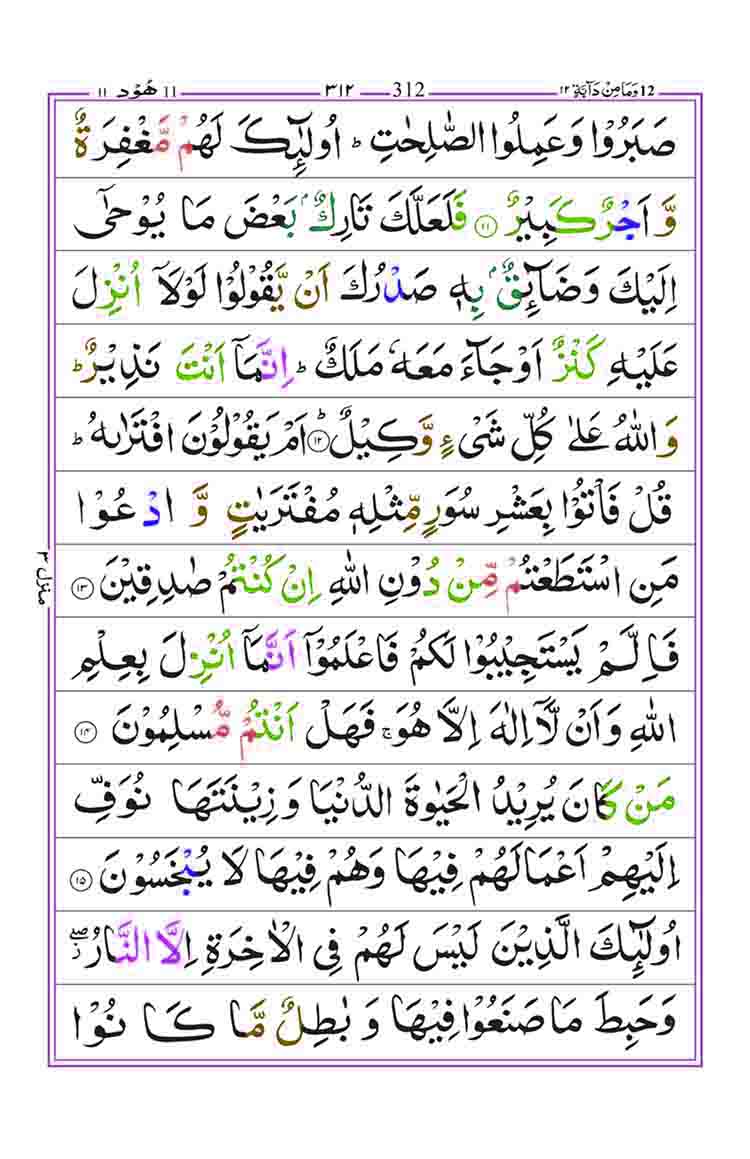 12 وَمَا مِنْ دَآبَّةٍ ١٢ 312 ٣١٢ 11 هُوْد ١١
صَبَرُوْا وَعَمِلُوا الصّٰلِحٰتِ ؕ اُولٰٓئِكَ لَهُمْ مَّغْفِرَةٌ
وَّاَجْرٌ كَبِيْرٌ ۝۱۱ فَلَعَلَّكَ تَارِكٌۢ بَعْضَ مَا يُوْحٰۤى
اِلَيْكَ وَضَآئِقٌۢ بِهٖ صَدْرُكَ اَنْ يَّقُوْلُوْا لَوْلَاۤ اُنْزِلَ
عَلَيْهِ كَنْزٌ اَوْ جَآءَ مَعَهٗ مَلَكٌ ؕ اِنَّمَاۤ اَنْتَ نَذِيْرٌ ؕ
وَاللّٰهُ عَلٰى كُلِّ شَىْءٍ وَّكِيْلٌ ؕ۝۱۲ اَمْ يَقُوْلُوْنَ افْتَرٰٮهُ ؕ
قُلْ فَاْتُوْا بِعَشْرِ سُوَرٍ مِّثْلِهٖ مُفْتَرَيٰتٍ وَّادْعُوْا
مَنِ اسْتَطَعْتُمْ مِّنْ دُوْنِ اللّٰهِ اِنْ كُنْتُمْ صٰدِقِيْنَ ۝۱۳
فَاِلَّمْ يَسْتَجِيْبُوْا لَكُمْ فَاعْلَمُوْۤا اَنَّمَاۤ اُنْزِلَ بِعِلْمِ
اللّٰهِ وَاَنْ لَّاۤ اِلٰهَ اِلَّا هُوَ ۚ فَهَلْ اَنْتُمْ مُّسْلِمُوْنَ ۝۱۴
مَنْ كَانَ يُرِيْدُ الْحَيٰوةَ الدُّنْيَا وَزِيْنَتَهَا نُوَفِّ
اِلَيْهِمْ اَعْمَالَهُمْ فِيْهَا وَهُمْ فِيْهَا لَا يُبْخَسُوْنَ ۝۱۵
اُولٰٓئِكَ الَّذِيْنَ لَيْسَ لَهُمْ فِى الْاٰخِرَةِ اِلَّا النَّارُ ۖز
وَحَبِطَ مَا صَنَعُوْا فِيْهَا وَبٰطِلٌ مَّا كَانُوْا
منزل ٣